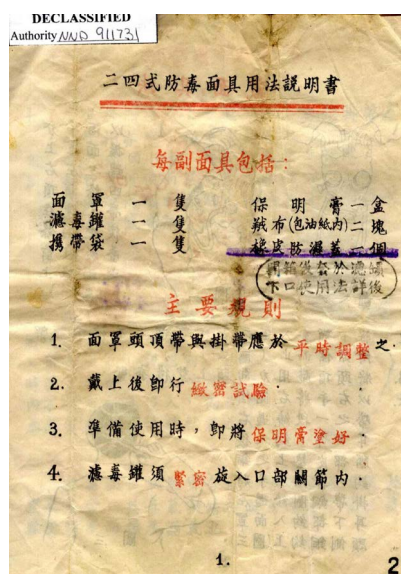 DECLASSIFIED
Authority NND 911731
二四式防毒面具用法説明書
每副面具包括:
面罩 一 隻 保明膏一盒
濾毒罐 一 隻 絨布(包油紙内)二塊
携帶袋 一 隻 橡皮防濕蓋一個
下口使用法詳後
主要規則
1. 面罩頭頂帶與掛帶應於平時調整之.
2. 戴上後卽行緻密試驗.
3. 準備使用時,卽將保明膏塗好.
4. 濾毒罐須緊密旋入口部關節内.
1.
2